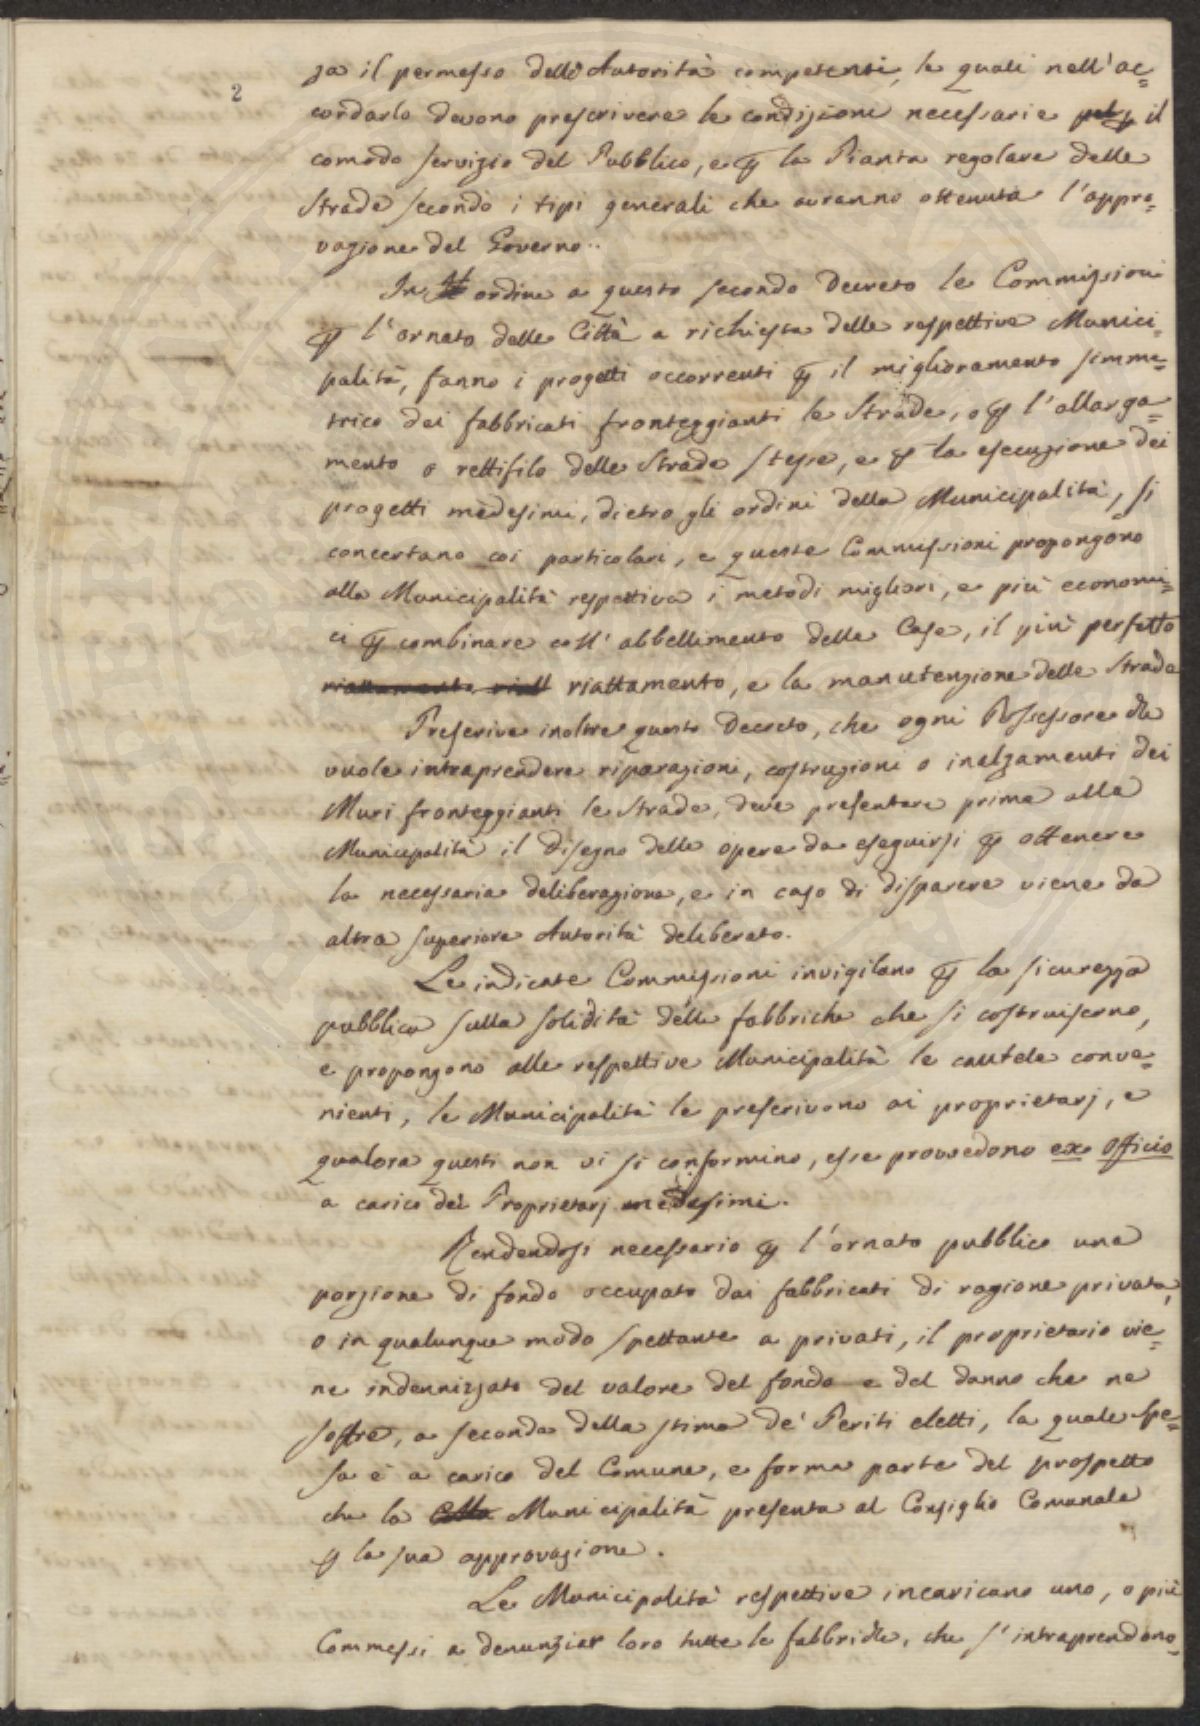 2
za il permesso delle Autorità competenti, le quali nell'ac=
cordarlo devono prescrivere le condizioni necessarie p il
comodo servizio del Pubblico, e p la Pianta regolare delle
Strade secondo i tipi generali che avranno ottenuta l'appro=
vazione del Governo..
In ordine a questo secondo Decreto le Commissioni
p l'ornato delle Città a richiesta delle respettive Munici=
palità, fanno i progetti occorrenti p il miglioramento simme=
trico dei fabbricati fronteggianti le Strade, o p l'allarga=
mento o rettifilo delle Strade stesse, e p la esecuzione dei
progetti medesimi, dietro gli ordini della Municipalità, si
concertano coi particolari, e queste Commissioni propongono
alla Municipalità respettiva i metodi migliori, e più economi=
ci p combinare coll'abbellimento delle Case, il più perfetto
riattamento riattamento, e la manutenzione delle Strade
Prescrive inoltre questo Decreto, che ogni Possessore che
vuole intraprendere riparazioni, costruzioni o inalzamenti dei
Muri fronteggianti le Strade, deve presentare prima alla
Municipalità il disegno delle opere da eseguirsi p ottenere
la necessaria deliberazione, e in caso di disparere viene da
altra superiore Autorità deliberato.
Le indicate Commissioni invigilano p la sicurezza
pubblica sulla solidità delle fabbriche che si costruiscono,
e propongono alle respettive Municipalità le cautele conve=
nienti, le Municipalità le prescrivono ai proprietarj, e
qualora questi non vi si conformino, esse provvedono ex Officio
a carico dei Proprietarj medesimi.
Rendendosi necessario p l'ornato pubblico una
porzione di fondo occupato dai fabbricati di ragione privata,
o in qualunque modo spettante a privati, il proprietario vie=
ne indennizzato del valore del fondo e del danno che ne
soffre, a seconda della stima de' Periti eletti, la quale spe=
sa è a carico del Comune, e forma parte del prospetto
che la Municipalità presenta al Consiglio Comunale
p la sua approvazione.
Le Municipalità respettive incaricano uno, o più
Commessi a denunziar loro tutte le fabbriche, che s'intraprendono=